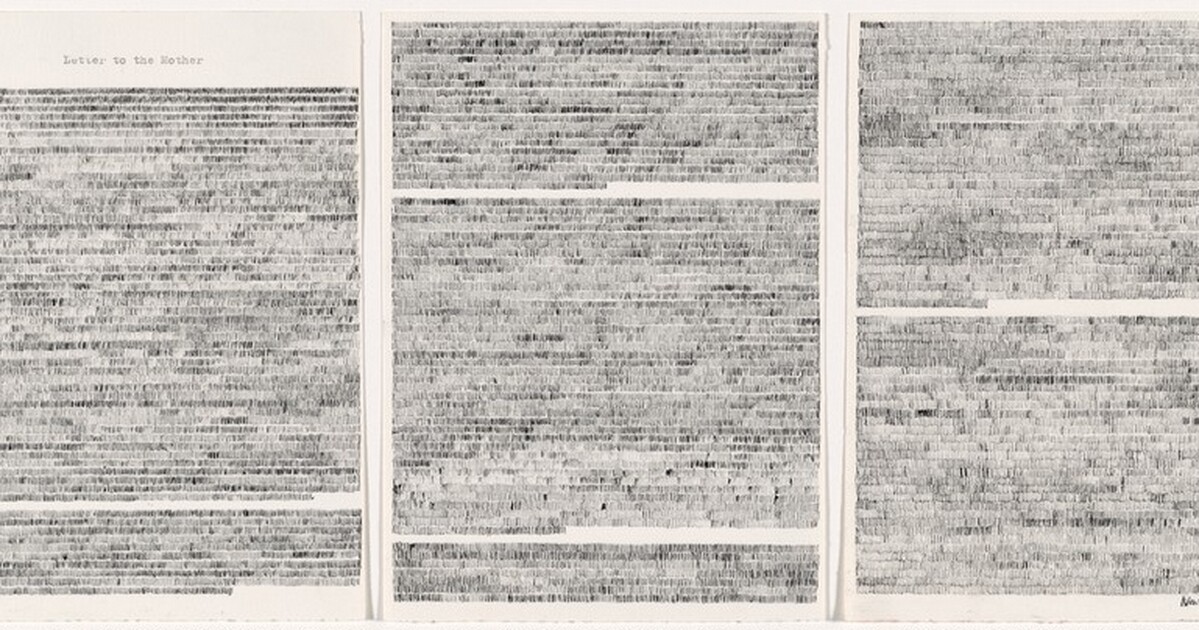 Letter to the Mother